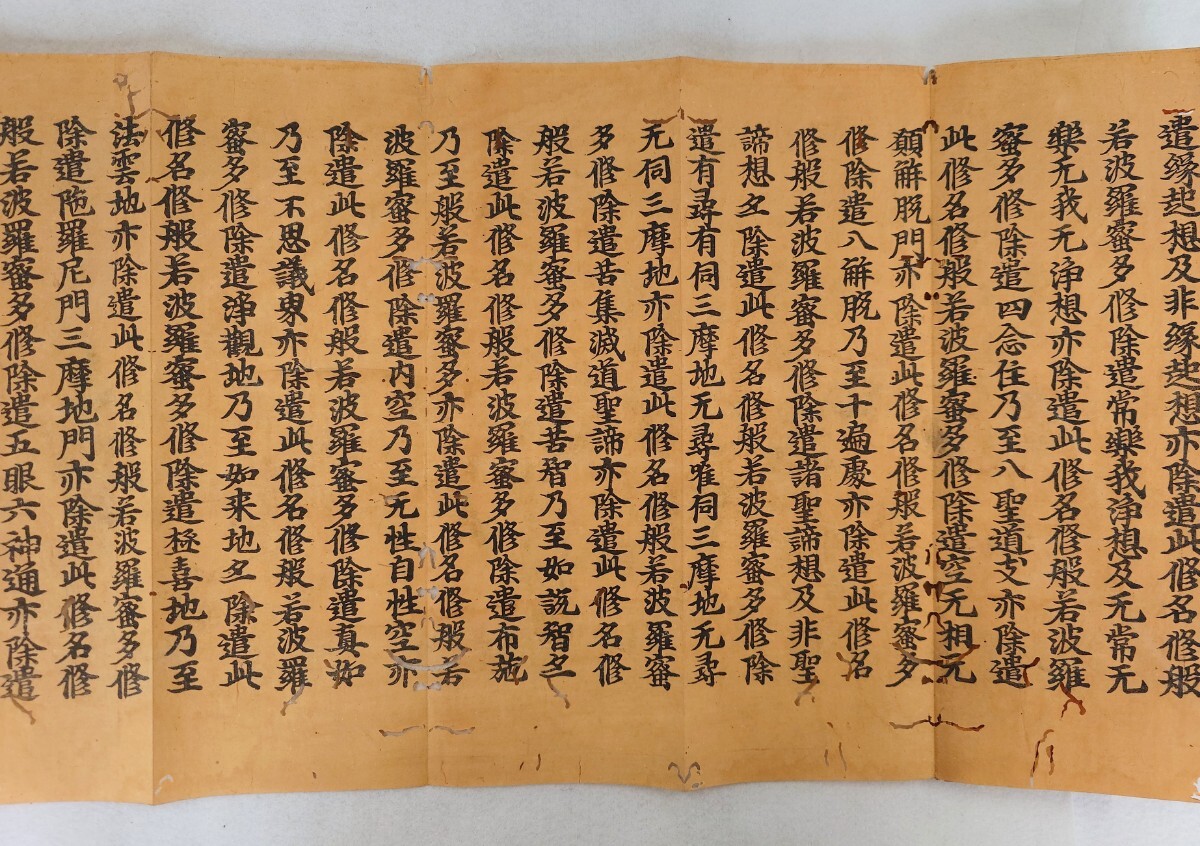 遣縁起想及非縁起想亦除遣此修名修般
若波羅蜜多修除遣常樂我淨想及无常无
樂无我无淨想亦除遣此修名修般若波羅
蜜多修除遣四念住乃至八聖道支亦除遣
此修名修般若波羅蜜多修除遣空无相无
願解脱門亦除遣此修名修般若波羅蜜多
修除遣八解脱乃至十遍處亦除遣此修名
修般若波羅蜜多修除遣諸聖諦想及非聖
諦想亦除遣此修名修般若波羅蜜多修除
遣有尋有伺三摩地无尋唯伺三摩地无尋
无伺三摩地亦除遣此修名修般若波羅蜜
多修除遣苦集滅道聖諦亦除遣此修名修
般若波羅蜜多修除遣苦智乃至如説智亦
除遣此修名修般若波羅蜜多修除遣布施
乃至般若波羅蜜多亦除遣此修名修般若
波羅蜜多修除遣内空乃至无性自性空亦
除遣此修名修般若波羅蜜多修除遣真如
乃至不思議界亦除遣此修名修般若波羅
蜜多修除遣淨觀地乃至如来地亦除遣此
修名修般若波羅蜜多修除遣極喜地乃至
法雲地亦除遣此修名修般若波羅蜜多修
除遣陁羅尼門三摩地門亦除遣此修名修
般若波羅蜜多修除遣五眼六神通亦除遣